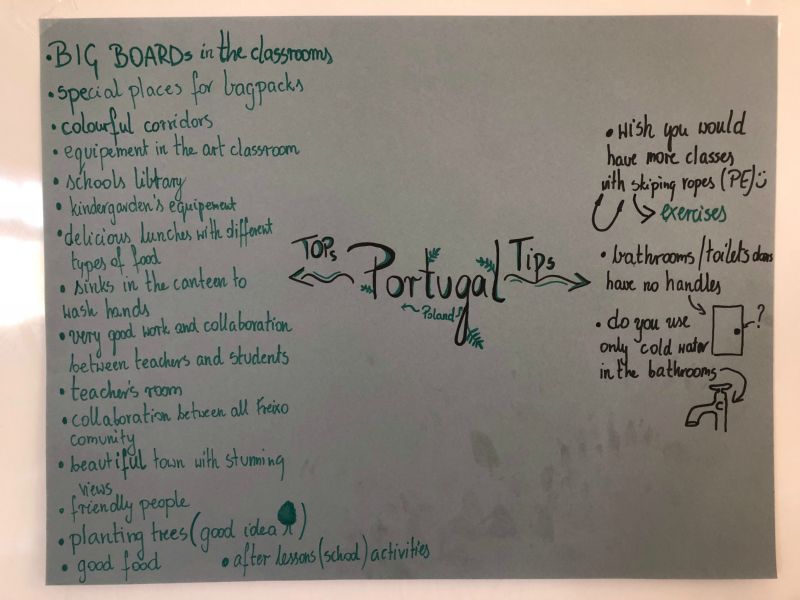 • BIG BOARDs in the classrooms
• special places for bagpacks
• colourful corridors
• equipement in the art classroom
• schools library
• kindergarden's equipement
• delicious lunches with different
types of food
• sinks in the canteen to
wash hands
• very good work and collaboration
between teachers and students
• teacher's room
• collaboration between all Freixo
comunity
• beautiful town with stunning
views
• friendly people
• planting trees (good idea )
• good food
• after lessons (school) activities
TOPs
Portugal
Poland
Tips
• Wish you would
have more classes
with skiping ropes (PE)
exercises
• bathrooms/toilets doors
have no handles
?
• do you use
only cold water
in the bathrooms
C